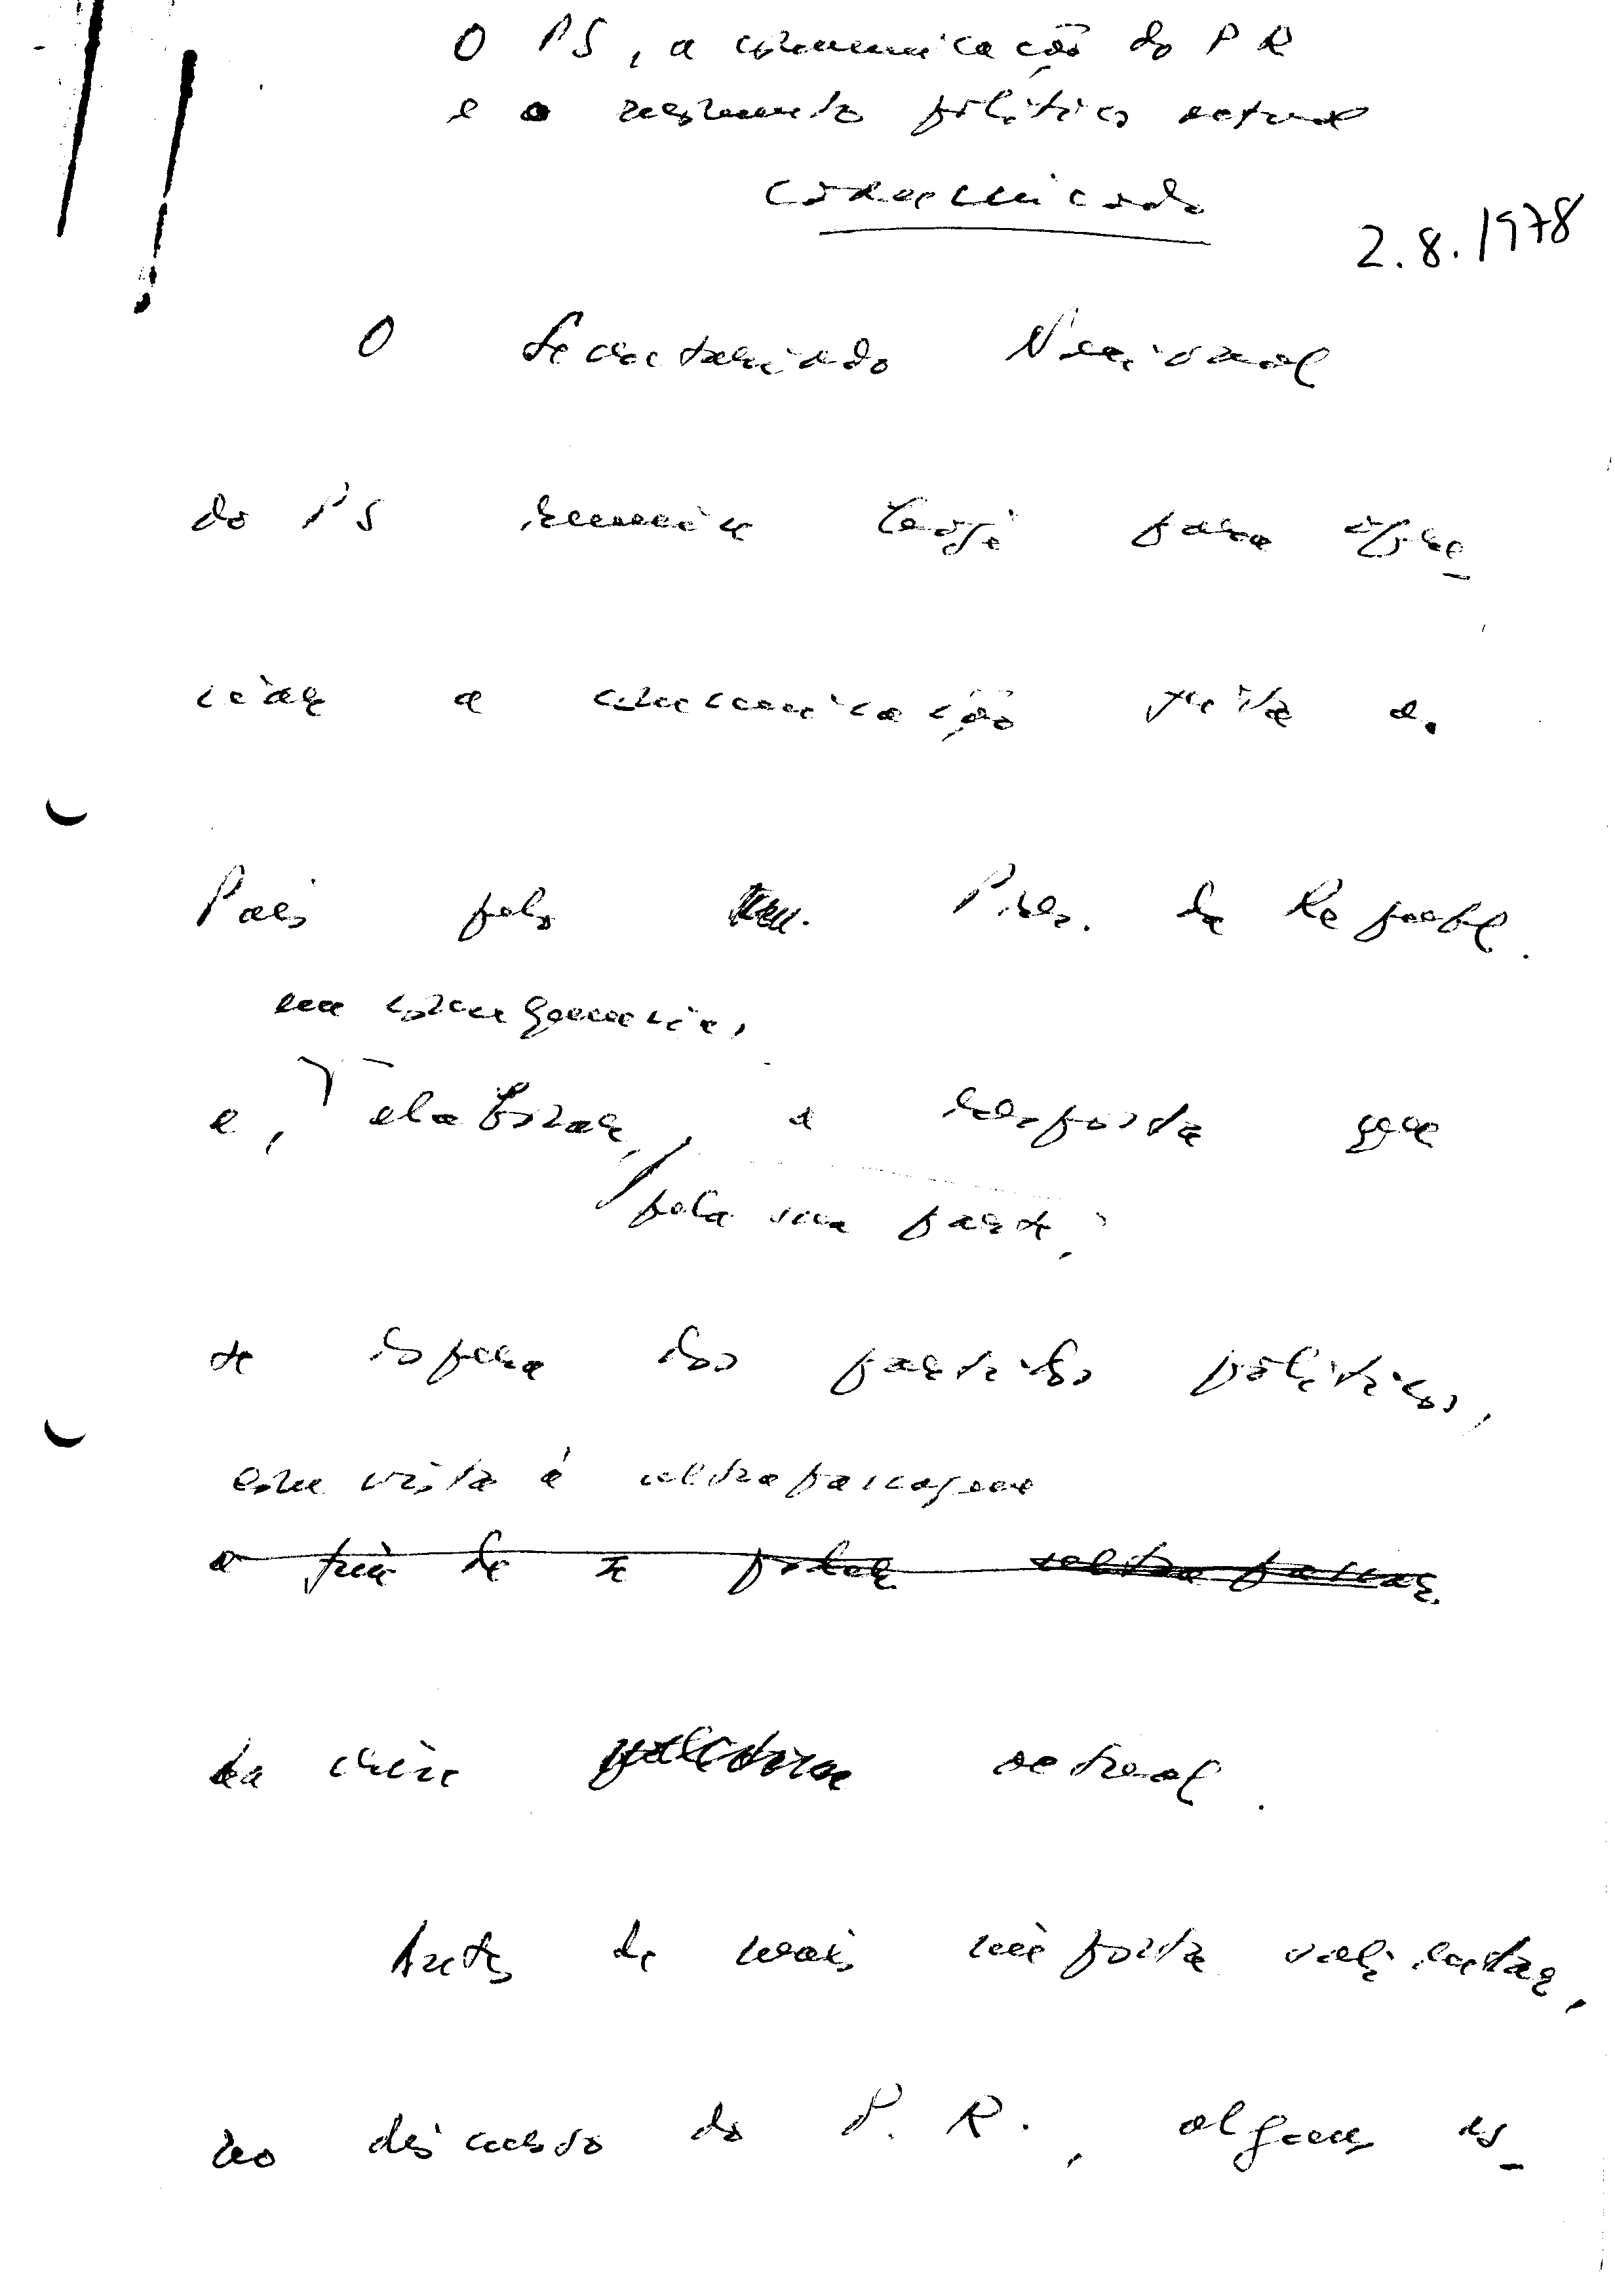 O PS, a comunicação do PR
e o momento político actual
Comunicado
2.8.1978
O Secretariado Nacional
do PS reuniu hoje para apre_
ciar a comunicação feita ao
País pelo Pres. da Republ.
em consequência,
e, elaborar, a resposta que
pela sua parte,
se espera dos partidos políticos,
com vista à ultrapassagem
a fim de se poder ultrapassar
da crise actual.
Antes de mais importa salientar,
no discurso do P. R., alguns as_